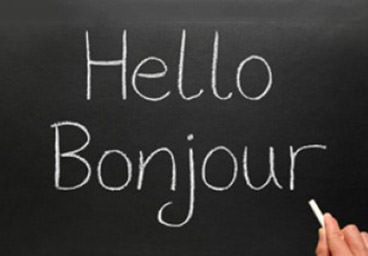 Hello
Bonjour